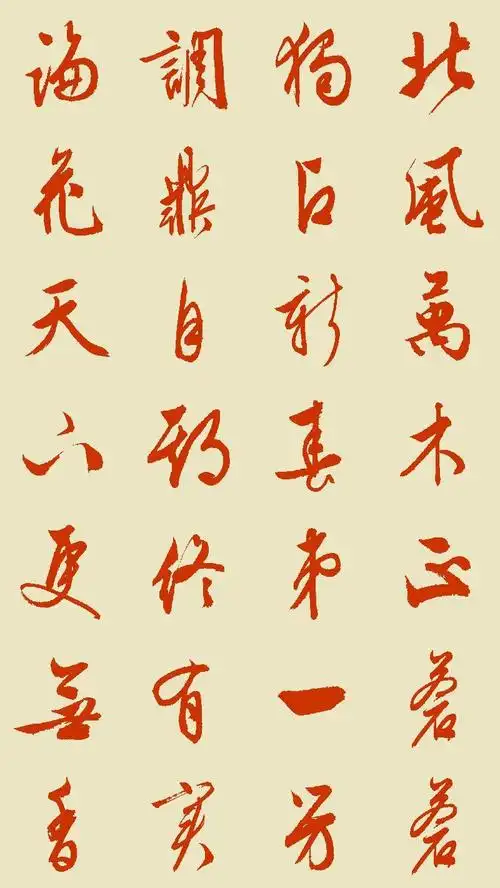 北風萬木正蒼蒼
獨占新春第一芳
調鼎自期終有實
論花天下更無香